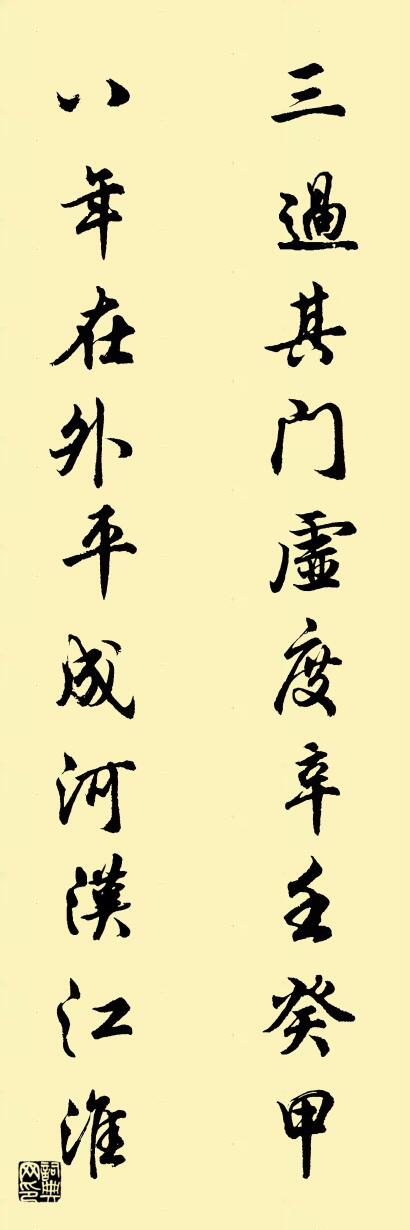 三過其门虛度辛壬癸甲
八年在外平成河漢江淮
詞典网印